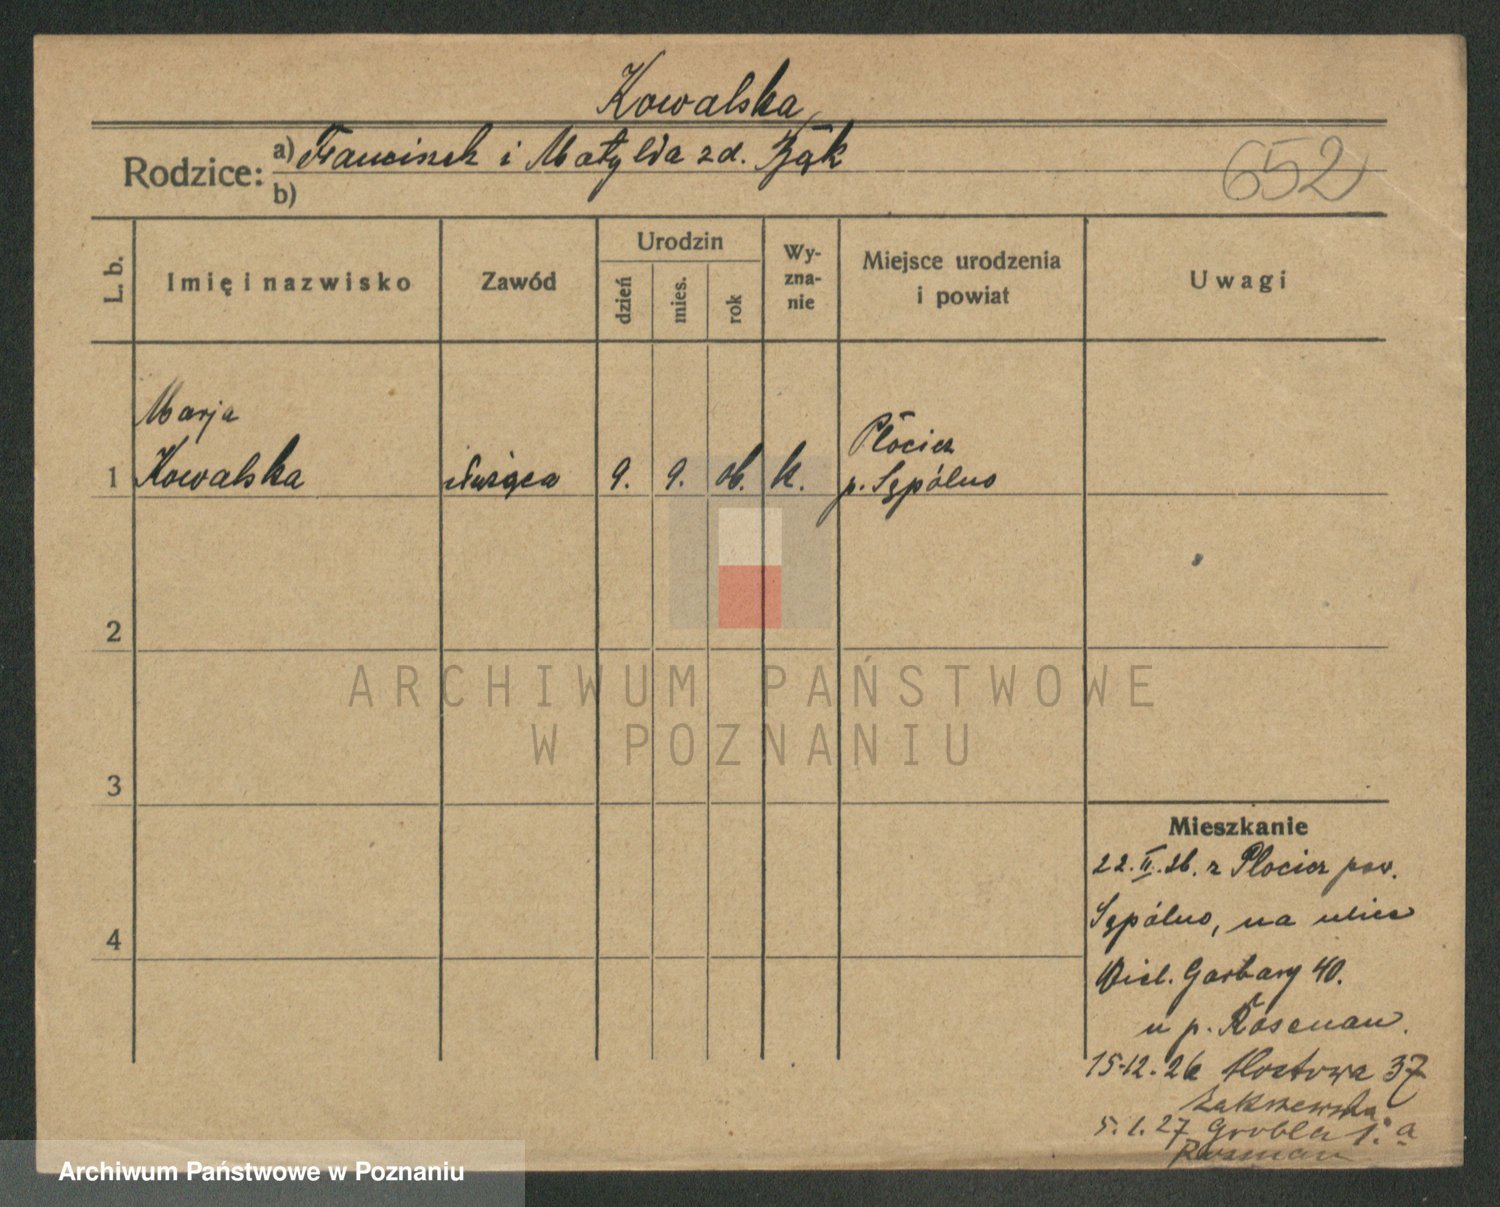 Kowalska
Rodzice: a) Franciszek i Matylda zd. Bąk
652
b)
L. b.
Imię i nazwisko
Zawód
Urodzin
dzień
mies.
rok
Wy-
zna-
nie
Miejsce urodzenia
i powiat
Uwagi
Marja
1 Kowalska służąca 9. 9. 06. k. Płocicz
p. Sępólno
2
3
4
ARCHIWUM PAŃSTWOWE
W POZNANIU
Mieszkanie
22. II. 26. z Płocicz pow.
Sępólno, na ulicę
Wiel. Garbary 40.
u p. Rosenau.
15-12-26 Mostowa 37
Zakrzewska
5.1.27 Grobla 1.a
Archiwum Państwowe w Poznaniu